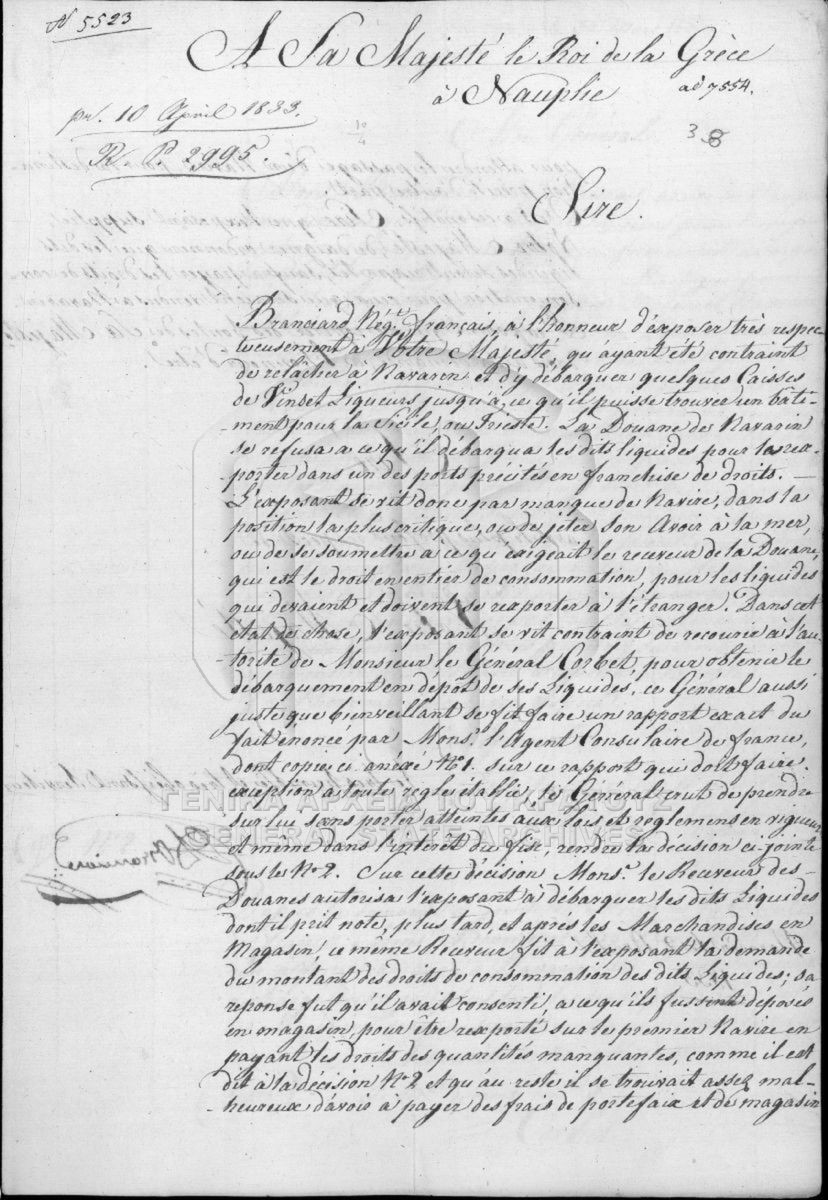 N 5523
A Sa Majesté le Roi de la Grèce
à Nauplie
ad 7554.
pr. 10 April 1833.
R. P. 2995.
10/4
38
Sire.
Branciard Nég.t français, à l'honneur d'exposer très respec-
-tueusement à Votre Majesté, qu'ayant été contraint
de relâcher à Navarin et d'y débarquer quelques Caisses
de Vin et Liqueurs jusqu'à ce qu'il puisse trouver un bâti-
-ment pour la Sicile, ou Trieste. La Douane de Navarin
se refusa a ce qu'il débarqua les dits liquides pour les rex-
-porter dans un des ports précités en franchise de droits. —
L'exposant se vit donc par manque de Navire, dans la
position la plus critique, ou de jeter son Avoir à la mer,
ou de se soumettre à ce qu'éxigeait le receveur de la Douane,
qui est le droit en entier de consommation, pour les liquides
qui devaient et doivent se rexporter à l'étranger. Dans cet
état de chose, l'exposant se vit contraint de recourir à l'au-
-torité de Monsieur le Général Corbet, pour obtenir le
débarquement en dépôt de ses Liquides, ce Général aussi
juste que bienveillant se fit faire un rapport exact du
fait énoncé par Mons.r l'Agent Consulaire de france,
dont copie ci anéxé N.o 1. sur ce rapport qui doit faire
exception a toute règle établie, le Général crut de prendre
sur lui sans porter atteintes aux lois et reglemens en vigueur
et même dans l'intérêt du fisc, rendre la décision ci-jointe
sous le N.o 2. Sur cette décision Mons.r le Receveur des
Douanes autorisa l'exposant à débarquer les dits Liquides
dont il prit note, plus tard, et aprés les Marchandises en
Magasin, ce même Receveur fit à l'exposant la demande
du montant des droits de consommation des dits Liquides; sa
reponse fut qu'il avait consenti, a ce qu'ils fussent déposés
en magasin, pour être rexporté sur le premier Navire en
payant les droits des quantités manquantes, comme il est
dit à la décision N.o 2 et qu'au reste il se trouvait assez mal-
-heureux d'avoir à payer des frais de portefaix et de magasin
ΓΕΝΙΚΑ ΑΡΧΕΙΑ ΤΟΥ ΚΡΑΤΟΥΣ
GENERAL STATE ARCHIVES